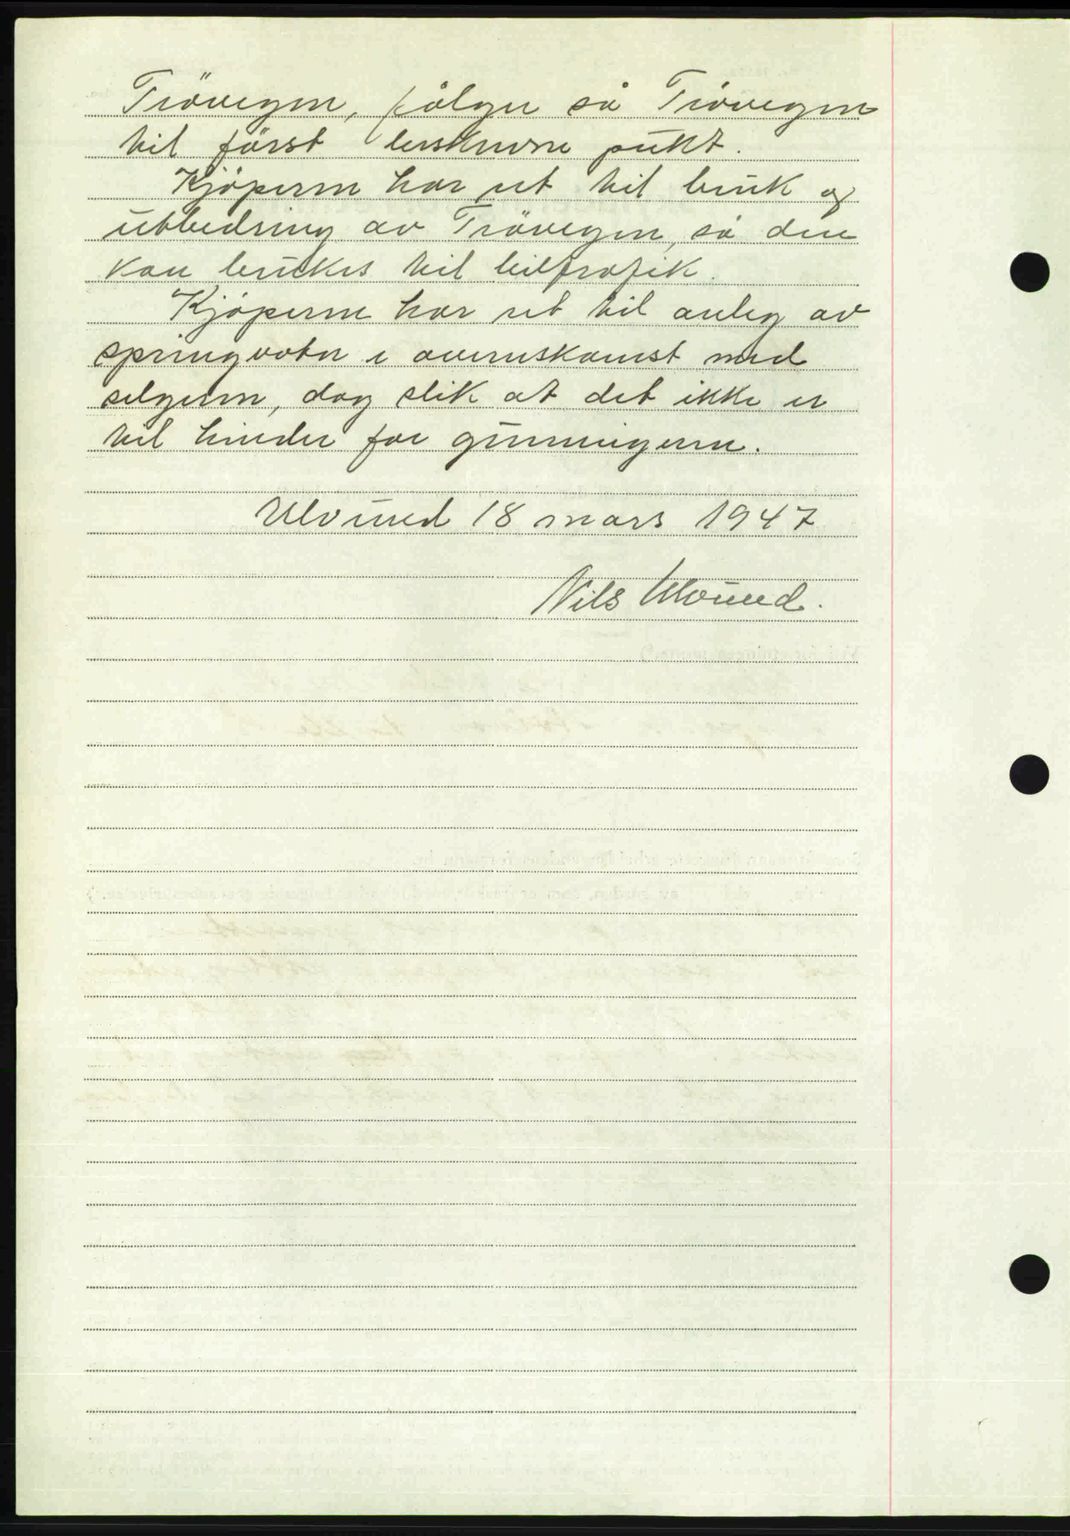 Trövegen, fölger så Trövegen
til först beskrevne punkt.
Kjöperen har ret til bruk og
utbedring av Trövegen, så den
kan brukes til biltrafik.
Kjöperen har ret til anleg av
springvatn i overenskomst med
selgeren, dog slik at det ikke er
til hinder for gjenningene.
Ulvund 18 mars 1947
Nils Ulvund.